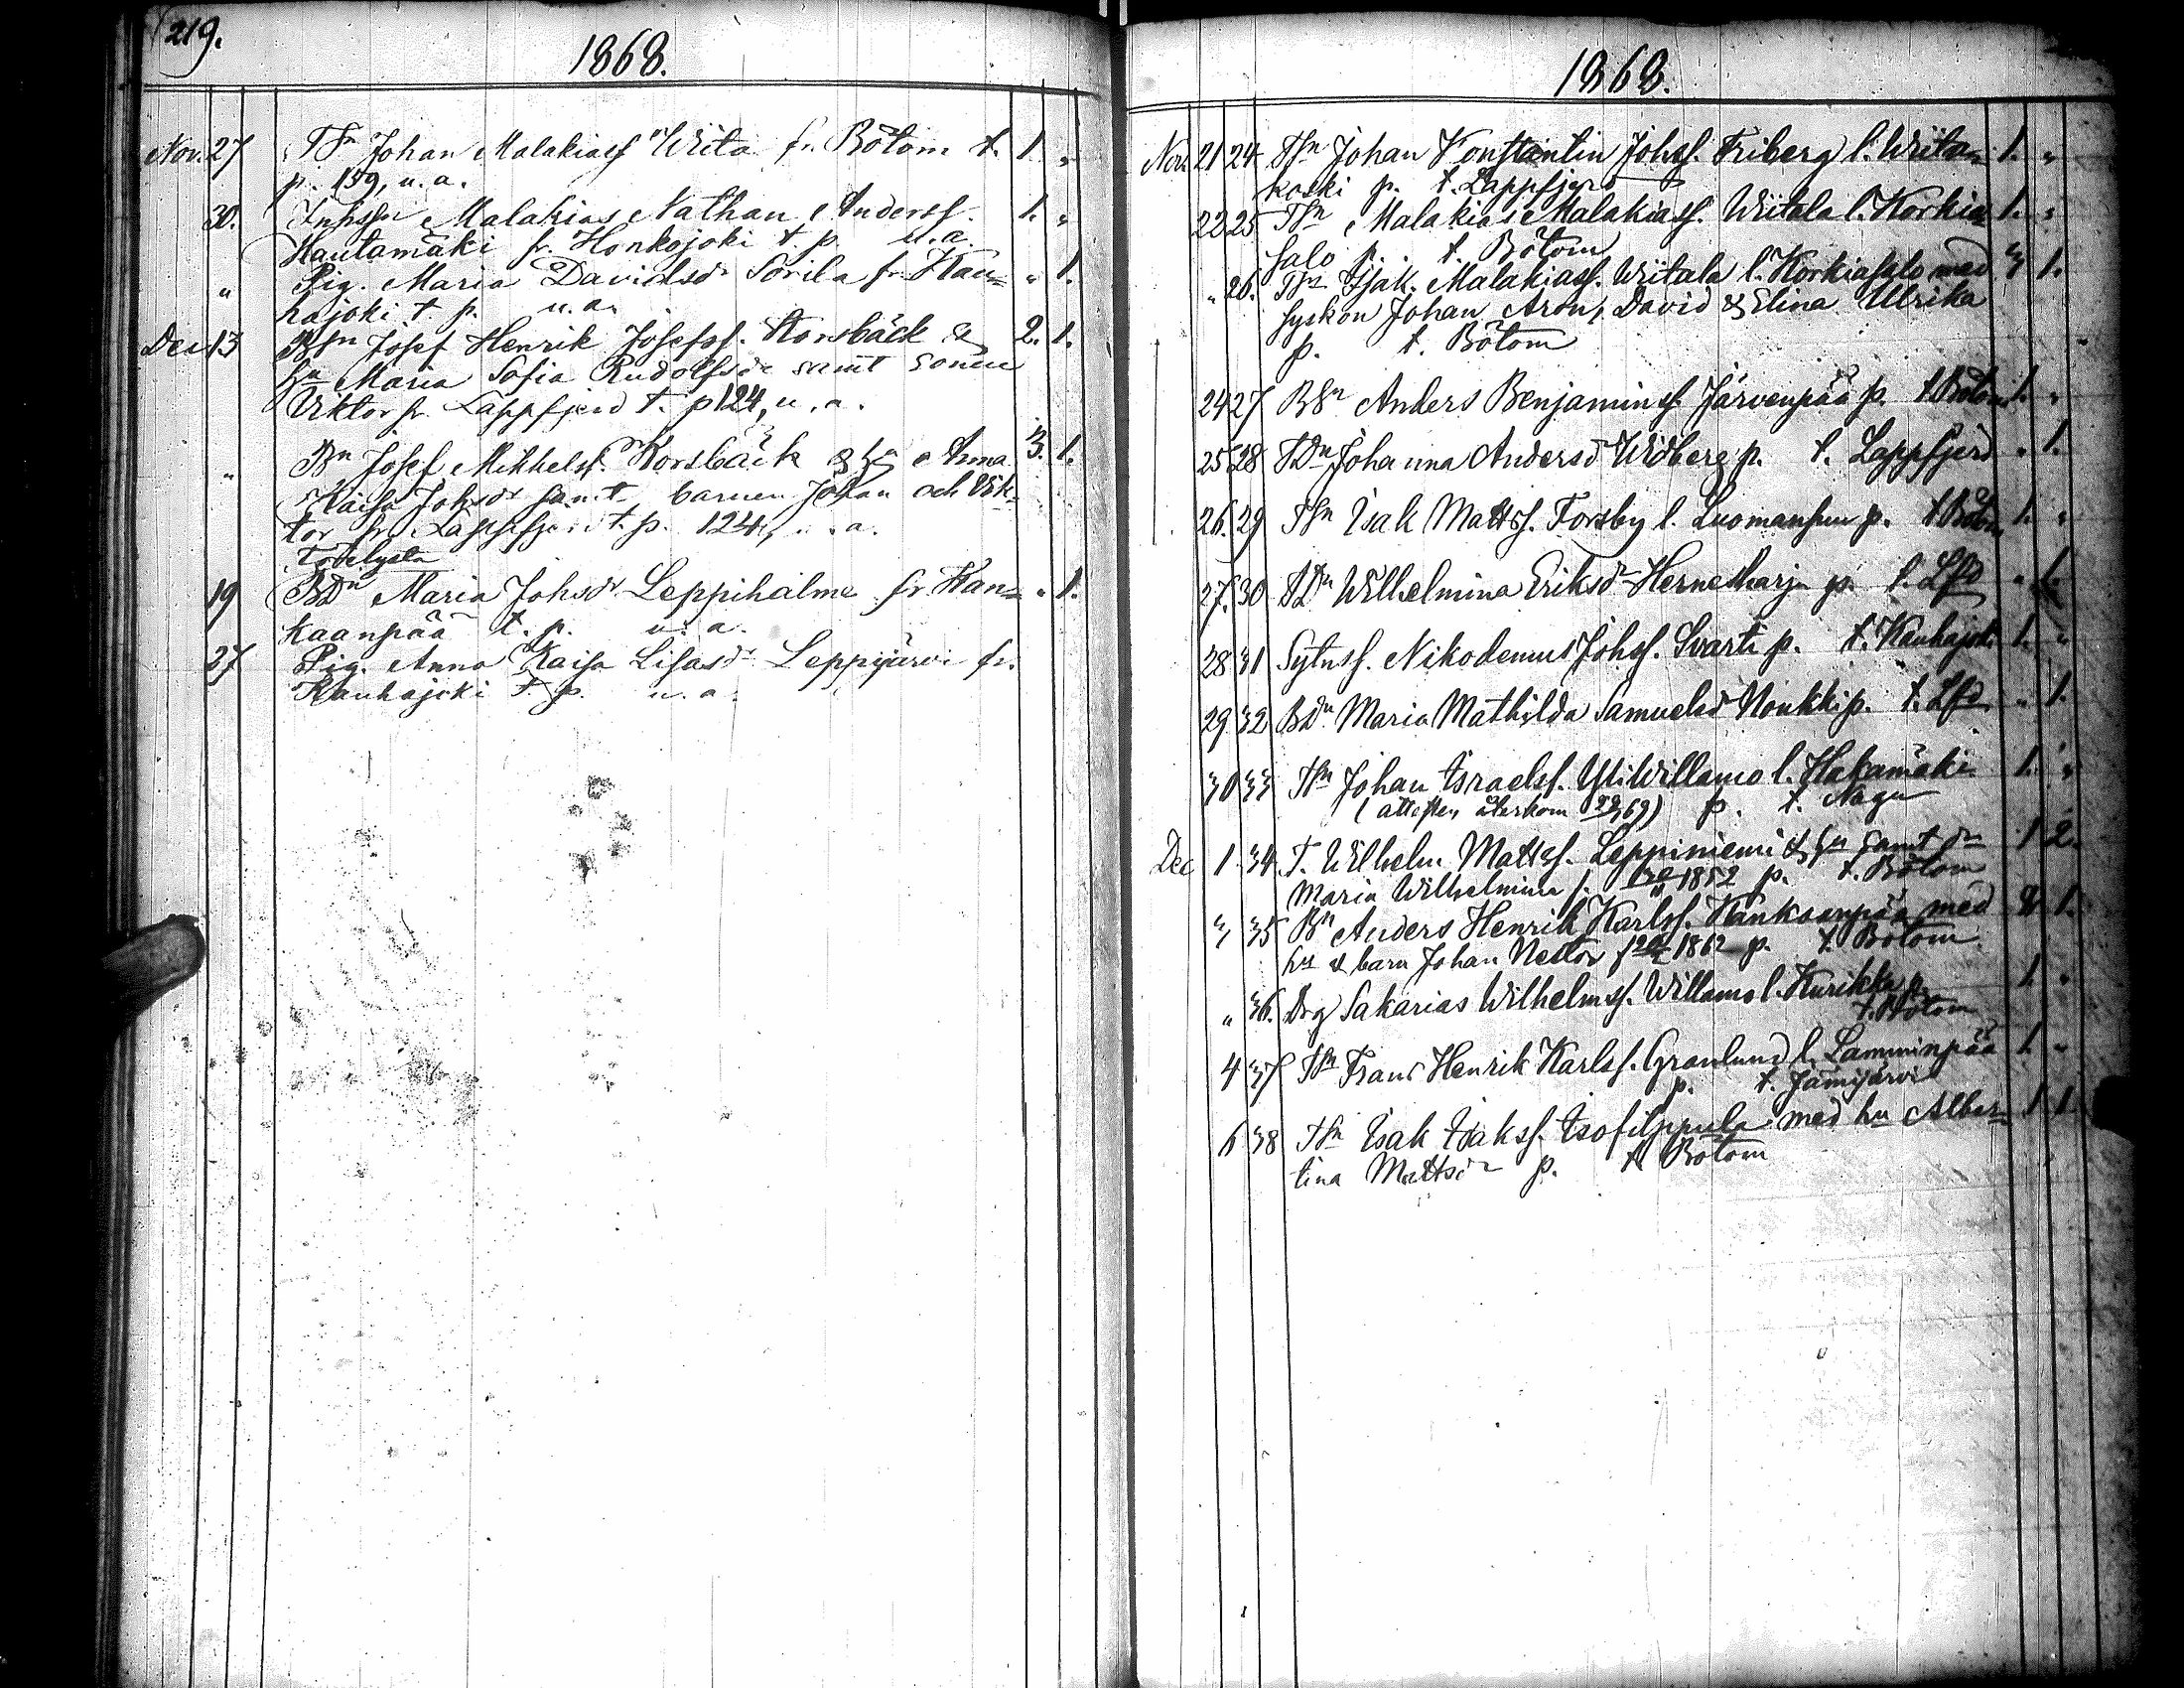 219.
1868.
Nov. 27 TSn Johan Malakiass Wiita fr. Bötom t. 1. "
p. 159, u. a.
30. Inhssn Malakias Nathan Anderss. 1. "
Hautamäki fr. Honkojoki t. p. u. a.
" Pig. Maria Davidsdr Sorila fr. Kau= " 1.
hajoki t. p. u. a.
Dec 13 BSn Josef Henrik Josefss. Korsbäck & 2. 1.
hu Maria Sofia Rudolfsdr samt sonen
Viktor fr. Lappfjerd t. p 124, u. a.
" Bn Josef Mikhelss. Korsbäck & hu Anna 3. 1.
Kaisa Johsdr samt barnen Johan och Vik-
tor fr. Lappfjerd t. p. 124, u. a.
19 BDn Maria Johsdr Leppihalme fr Kan= " 1.
kaanpää t. p. u. a.
27 Pig. Anna Kaisa Lisasdr Leppijärvi fr.
Kauhajoki t. p. u. a.
1868.
Nov 21 24 TSn Johan Konstantin Johss. Friberg l. Wiita= 1. "
koski p. t. Lappfjerd
22 25 TSn Malakias Malakiass. Wiitala l. Korkia= 1. "
salo p. t. Bötom
" 26. TSn Isak Malakiass. Wiitala l. Korkiasalo med 3 1.
syskon Johan Aron, David & Elina Ullrika
p. t. Bötom
24 27 BSn Anders Benjaminss. Järvenpää p. t. Bötom 1. "
25 28 TDn Johanna Andersd Widberg p. t. Lappfjerd " 1.
26. 29 TSn Isak Mattss. Forsby l. Luomansuu p. t. Bötom 1. "
27. 30 TDn Wilhelmina Eriksdr Hernesharju p. t. Lfd " 1.
28 31 Sytnss. Nikodemus Johss. Svarti p. t. Kauhajoki 1. "
29 32 BDn Maria Mathilda Samuelsd Nonkki p. t. Lfd " 1.
30 33 TSn Johan Israelss. Yli Willamo l. Hakamäki 1. "
(attesten återkom 69) p. t. Nagu
Dec 1 34 T. Wilhelm Mattss. Leppiniemi & hu samt dr 1 2.
Maria Wilhelmina f. 1852 p. t. Bötom
3 35 Bn Anders Henrik Karlss. Kankaanpää med 2 1.
hu & barn Johan Nestor f 1862 p. t. Bötom
" 36. Drg Sakarias Wilhelmss. Willamo l. Kurikka p. 1. "
t. Bötom
4 37 TSn Frans Henrik Karlss. Granlund l. Lamminpää 1. "
p. t. Jämijärvi
6 38 TSn Isak Isakss. Isofilppula med hu Alber= 1 1
tina Mattsdr p. t. Bötom